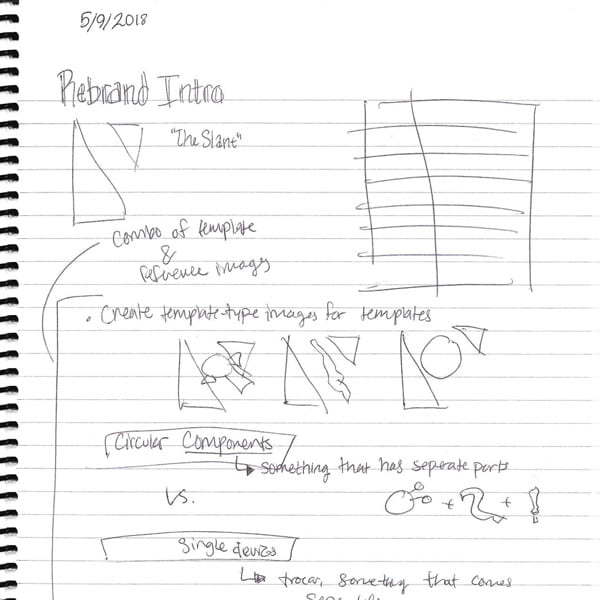 5/9/2018
Rebrand Intro
"The Slant"
Combo of template
&
reference images
• Create template-type images for templates
Circular Components
↳ something that has seperate parts
vs.
+ +
Single devices
↳ trocar, something that comes